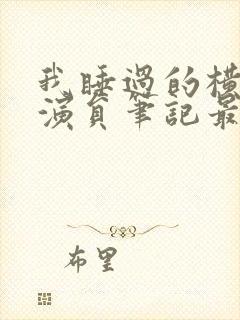 我睡過的橫
演員筆記最
布里